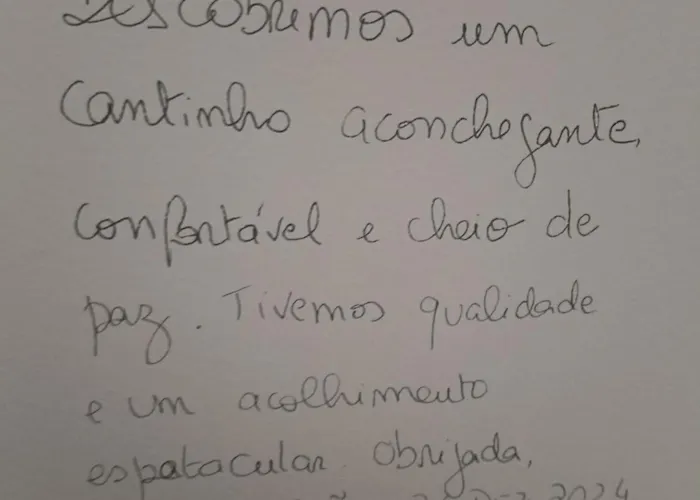 Descobrimos um
Cantinho aconchegante,
confortável e cheio de
paz. Tivemos qualidade
e um acolhimento
espatacular. Obrigada,
2024